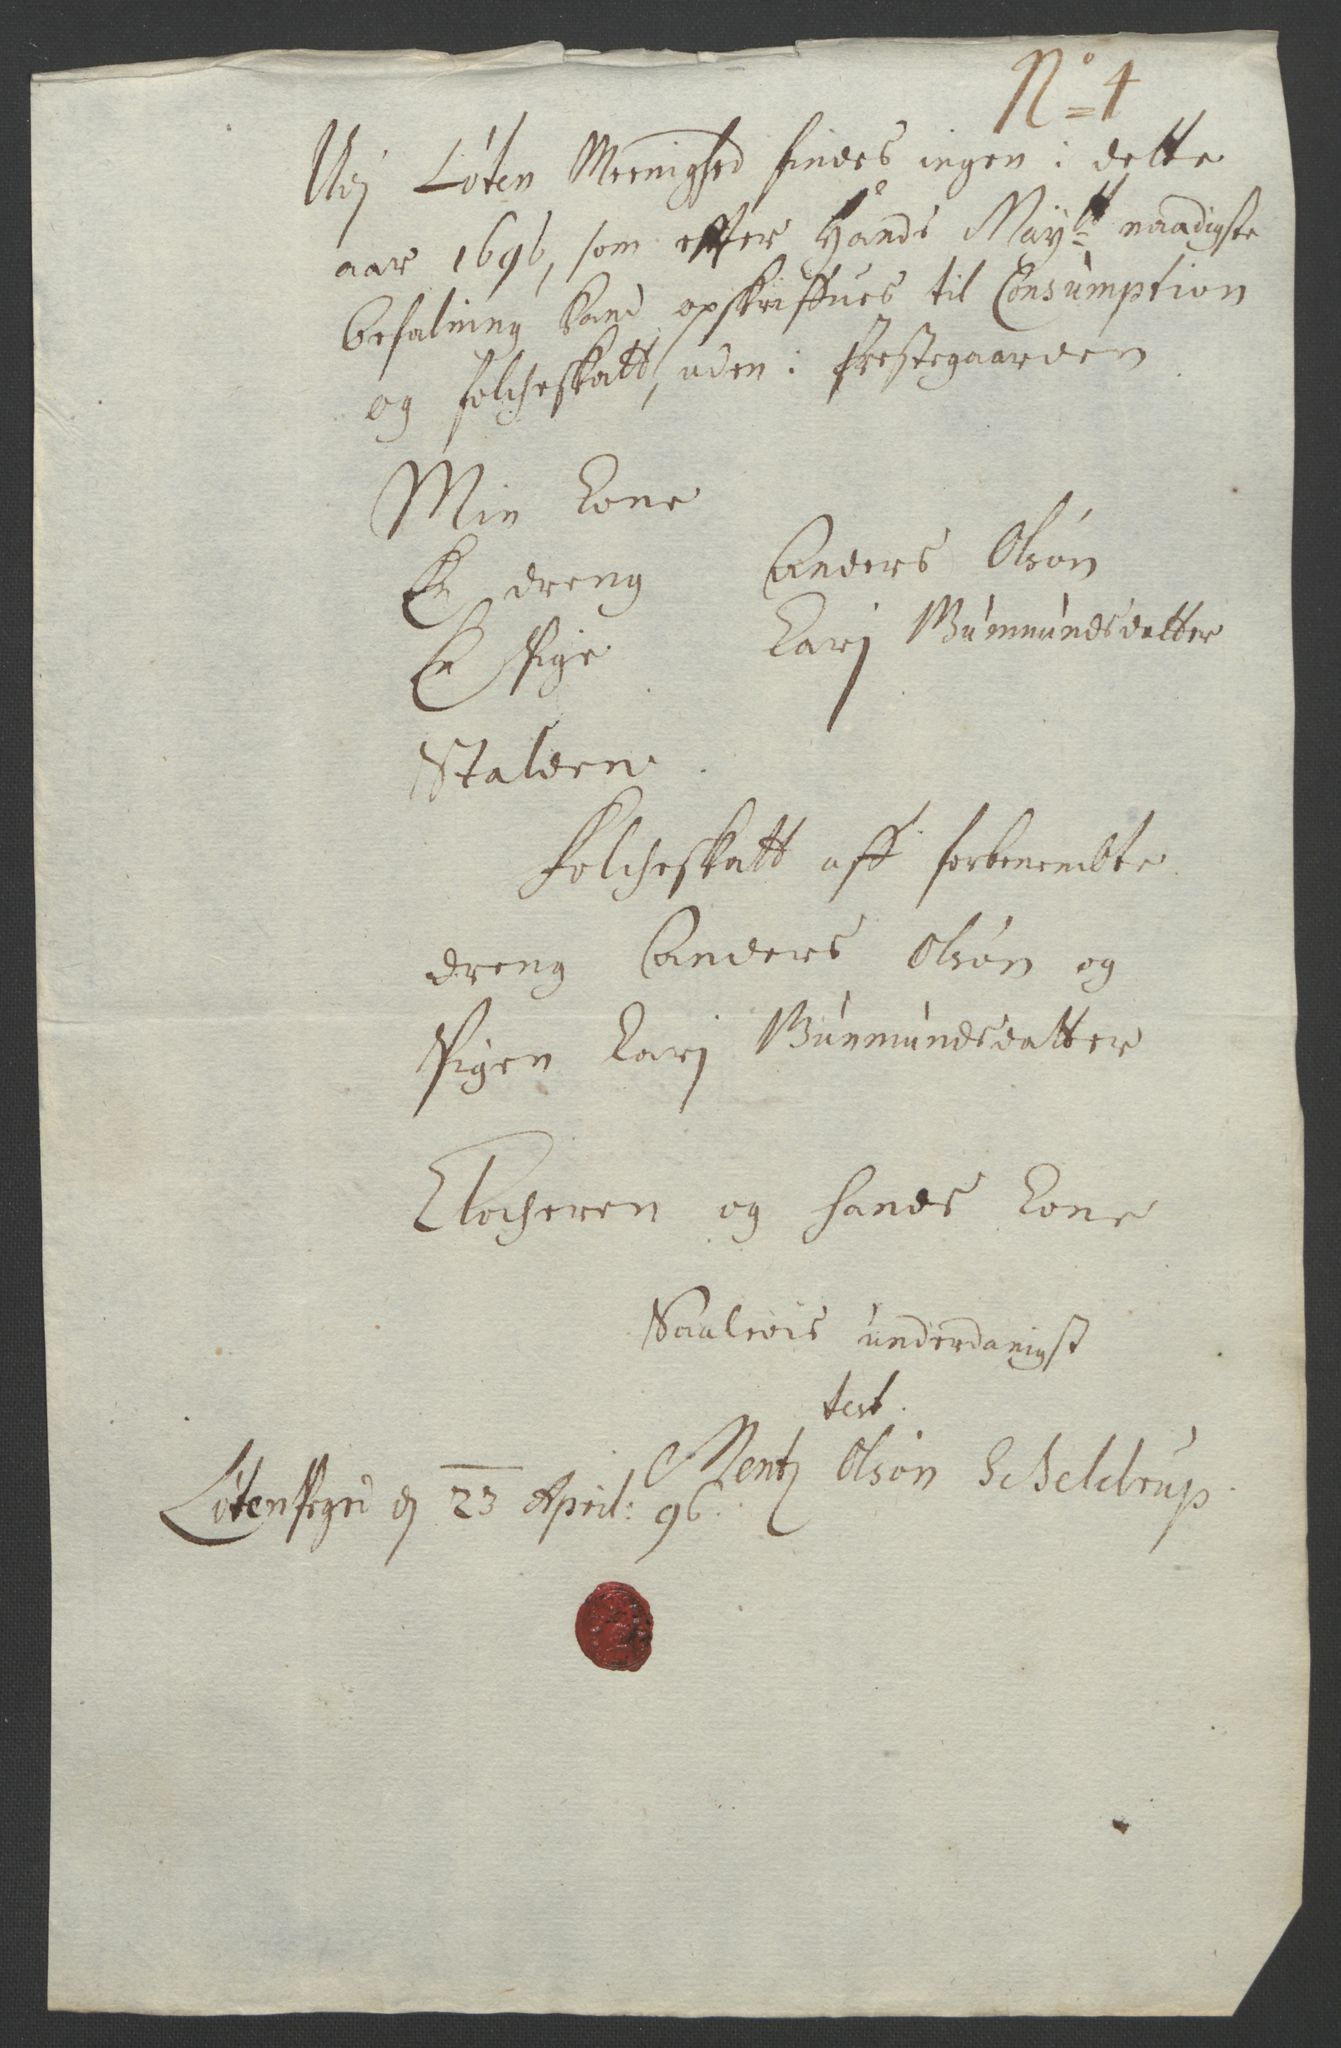 No 4
Udj Løten Meenighed findes ingen i dette
aar 1696, som effter Hånds Mayts naadigste
befalning kand opskriffues til Consumption
og folcheskatt, uden i Prestegaarden
Min Kone
En dreng Anders Olsøn
En Pige Karj Gunmundsdatter
Stalden
Folcheskatt aff forbenembte
dreng Anders Olsøn og
Pigen Karj Gunmundsdatter
Klocheren og hands Kone
Saaleedis underdanigst
test.
Mentz Olsøn Scheldrup.
Løten Pregd dj 23 April: 96.